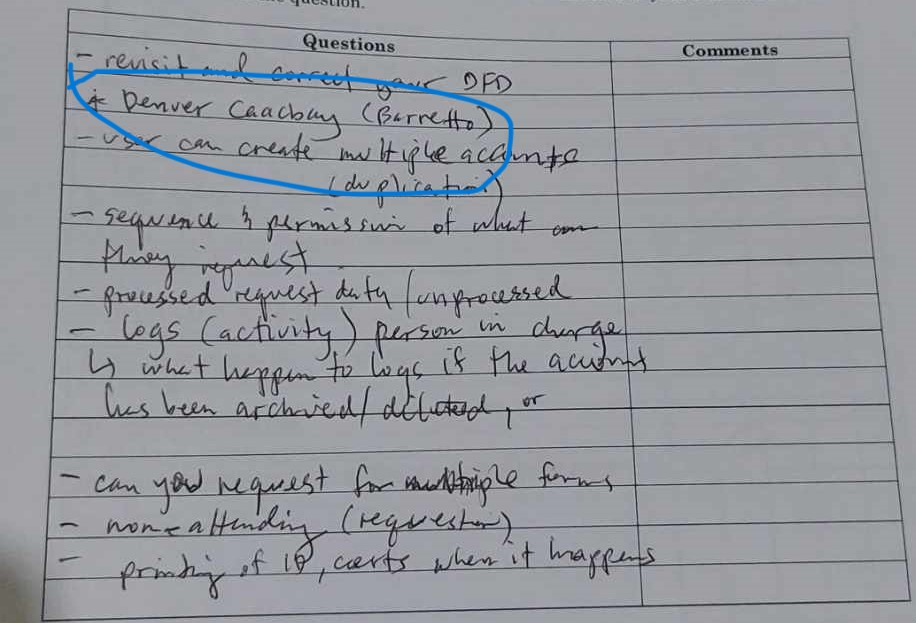 question.
Questions
Comments
- revisit and correct your DFD
* Denver Caacbay (Barretto)
- user can create multiple accounts
(duplication)
- sequence & permission of what can
they request
- processed request data / unprocessed
- logs (activity) person in charge
↳ what happen to logs if the account
has been archived / deleted, or
- can you request for multiple forms
- non-attending (requestor)
- printing of ID, certs when it happens